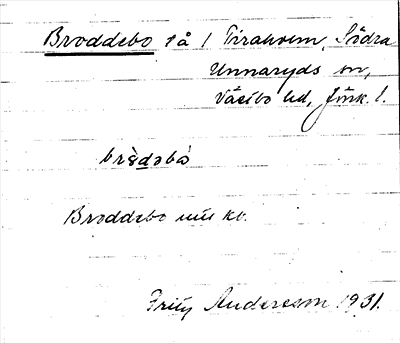 Broddebo så / Piraholm, Södra
Unnaryds sn,
Västbo hd, Jönk. l.
brèdabå
Broddebo
Fritz Anderson 1931.